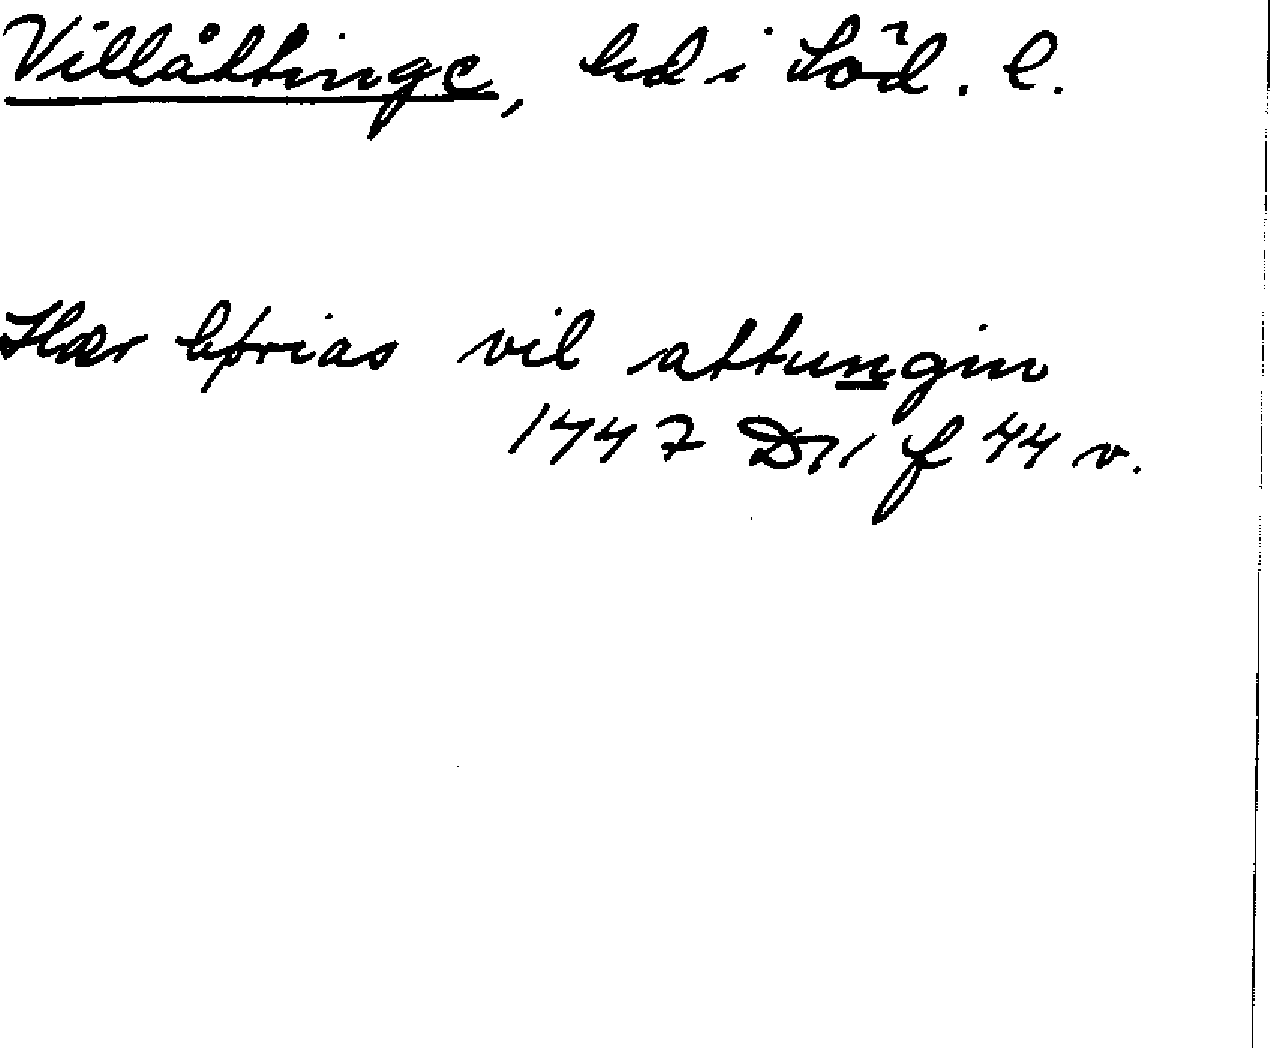 Villåttinge, hd i Söd. l.
Hær børias vil attungin
1447 D11 f 44 v.